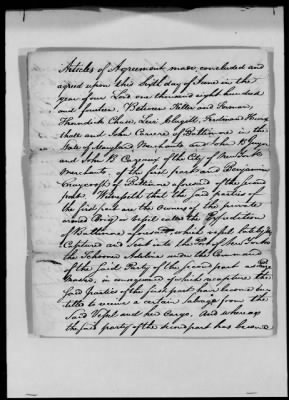 Articles of Agreement made, concluded and
agreed upon this sixth day of June in the
year of our Lord one thousand eight hundred
and fourteen, Between
Thorndick Chase, Levi Clagett, Ferdinand
and John Carrere of Baltimore in the
State of Maryland, Merchants and John
and John B. of the City of New York
Merchants, of the first part and Benjamin
of Baltimore aforesaid of the second
part. Witnesseth that the said parties of
the first part are the Owners of the private
armed Brig or vessel called the Expedition
of Baltimore aforesaid, which vessel lately
Captured and Sent into the Port of New York
the Schooner Adeline under the Command
of the said Party of the second part as Prize
Master, in consequence of which recapture the
said parties of the first part have become en-
titled to receive a certain salvage from the
said Vessel and her Cargo. And whereas
the said party of the second part has become